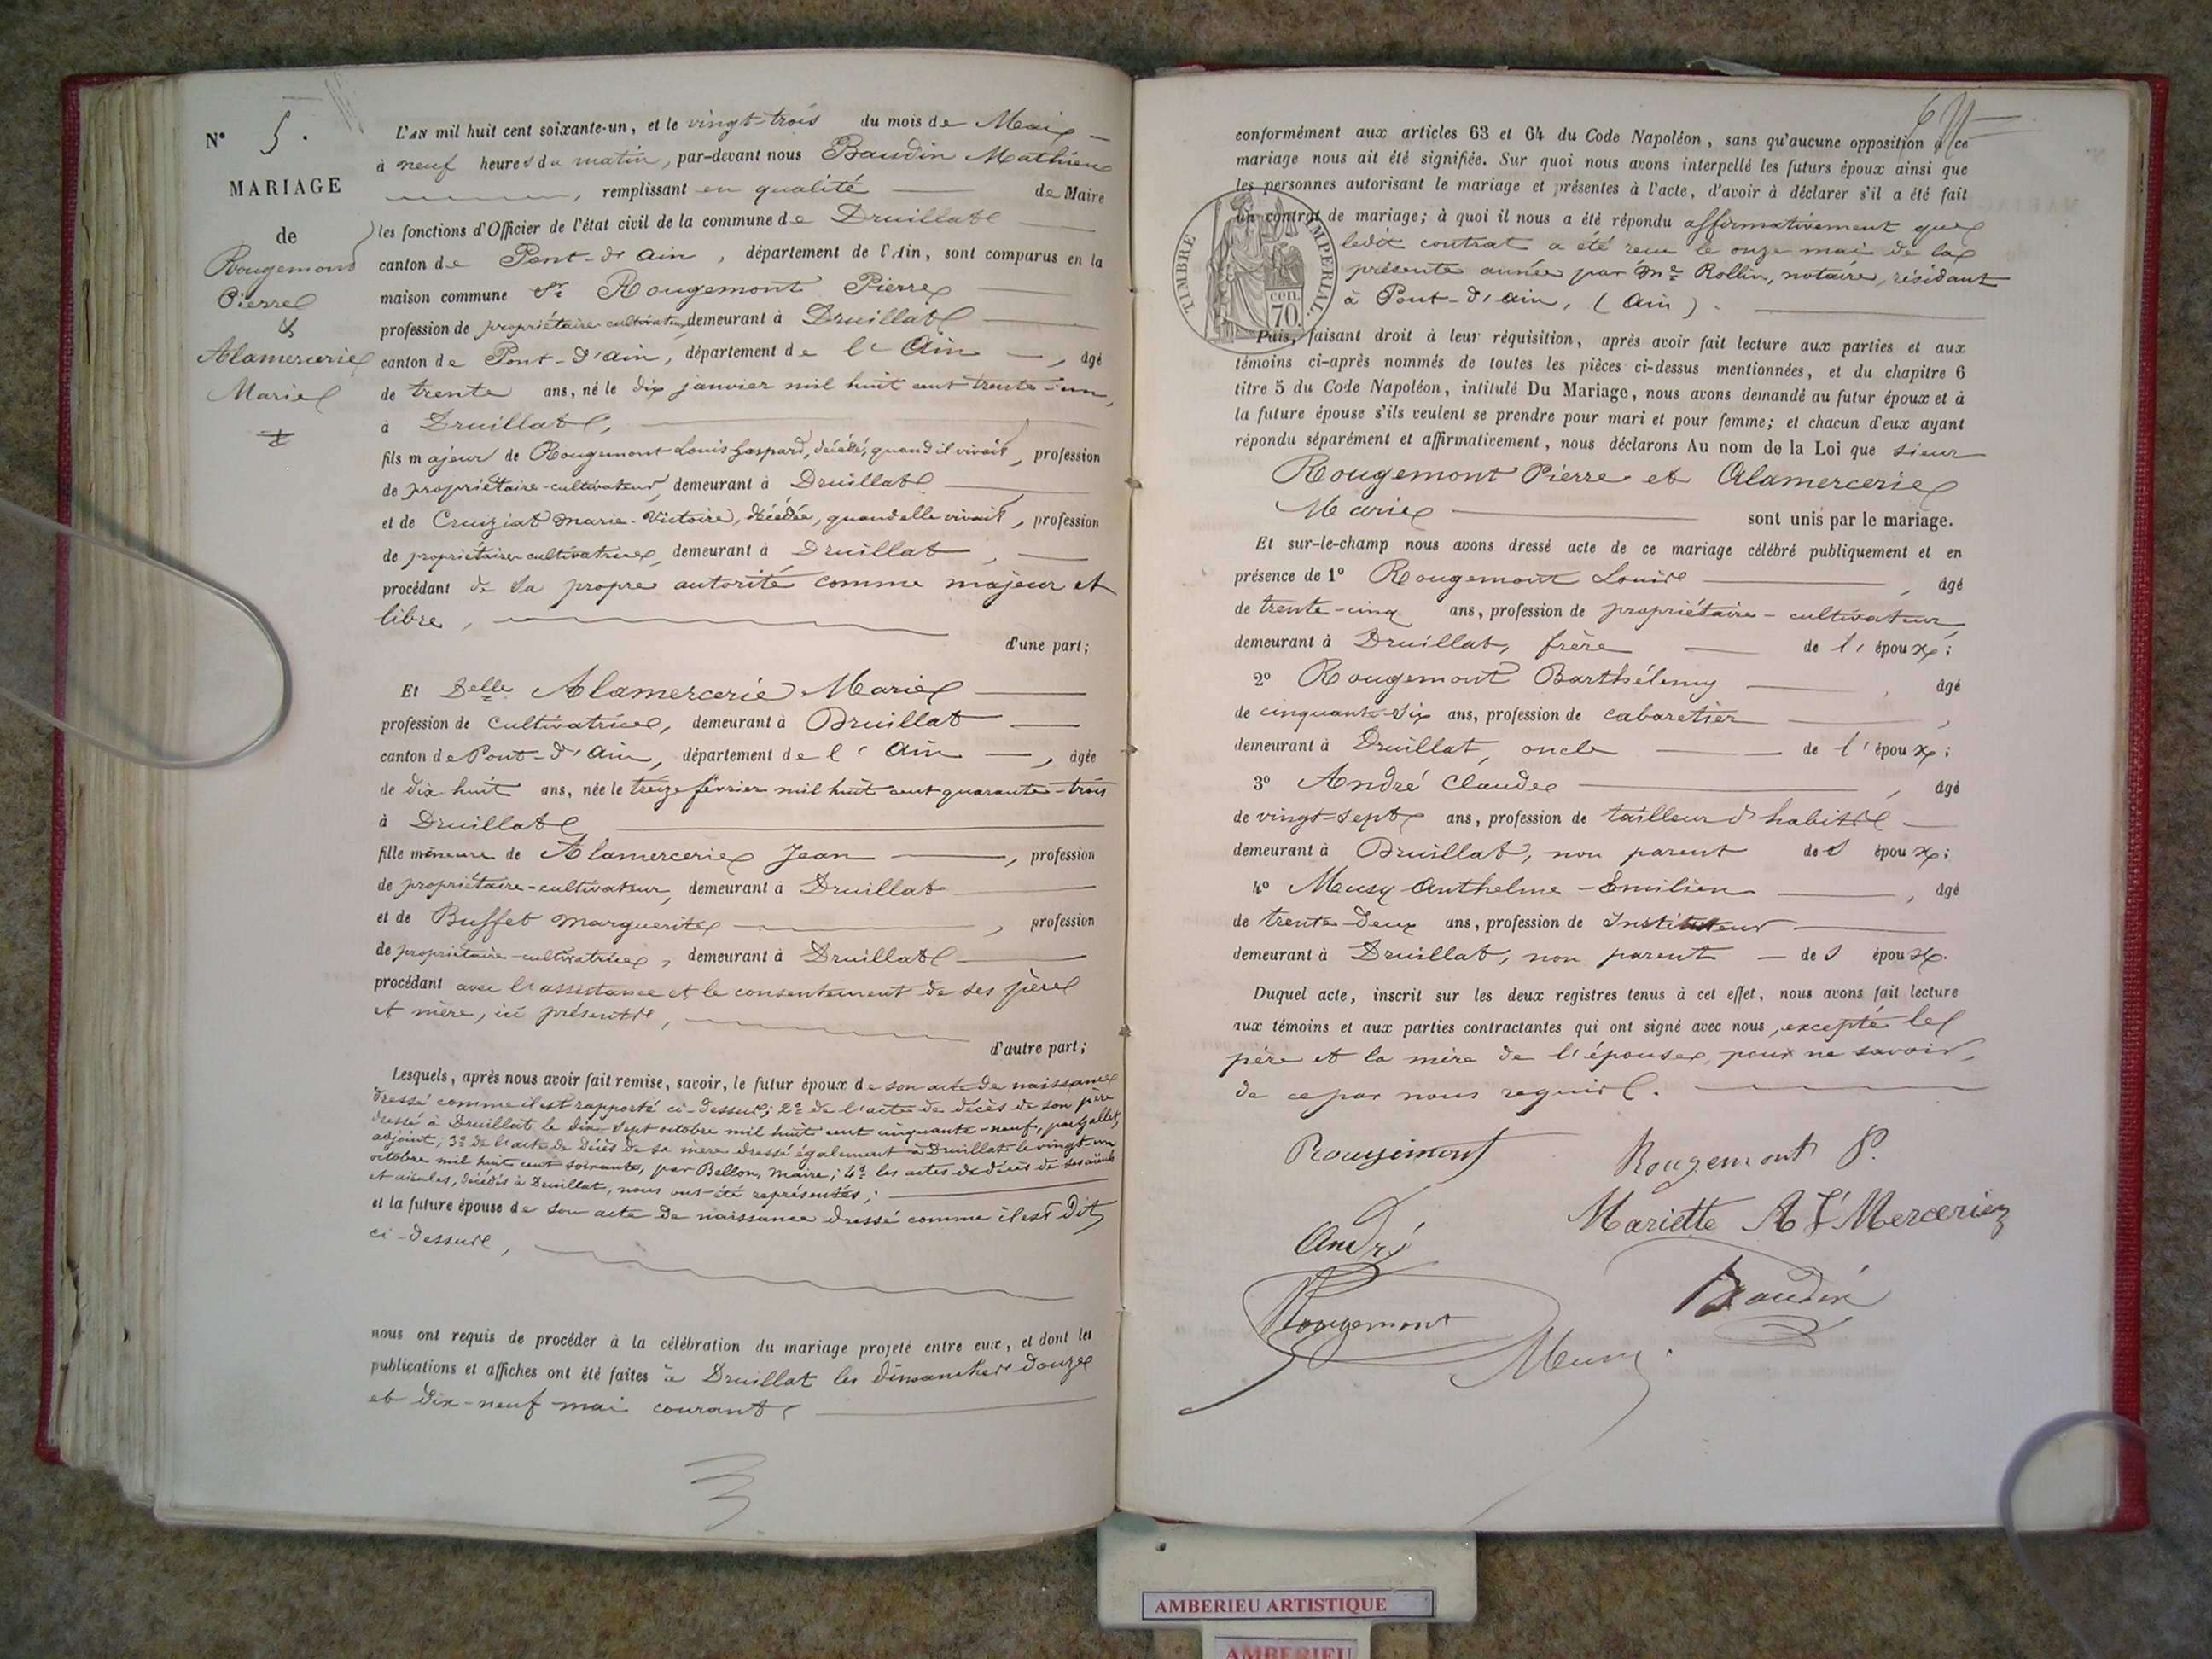 N° 5.
MARIAGE
de
Rougemont
Pierre
&
Alamercerie
Marie
L'AN mil huit cent soixante-un, et le vingt-trois du mois de Mai
à neuf heures du matin, par-devant nous Baudin Mathieu
, remplissant en qualité de Maire
les fonctions d'Officier de l'état civil de la commune de Druillat
canton de Pont-d'Ain, département de l'Ain, sont comparus en la
maison commune Sr Rougemont Pierre
profession de propriétaire-cultivateur, demeurant à Druillat
canton de Pont-d'Ain, département de l'Ain, âgé
de trente ans, né le dix janvier mil huit cent trente-un,
à Druillat,
fils majeur de Rougemont Louis Gaspard, décédé, quand il vivait, profession
de propriétaire-cultivateur, demeurant à Druillat
et de Cruiziat Marie-Victoire, décédée, quand elle vivait, profession
de propriétaire cultivatrice, demeurant à Druillat,
procédant de sa propre autorité comme majeur et
libre,
d'une part;
Et Delle Alamercerie Marie
profession de cultivatrice, demeurant à Druillat
canton de Pont-d'Ain, département de l'Ain, âgée
de dix-huit ans, née le treize février mil huit cent quarante-trois
à Druillat
fille mineure de Alamercerie Jean, profession
de propriétaire-cultivateur, demeurant à Druillat
et de Buffet Marguerite, profession
de propriétaire-cultivatrice, demeurant à Druillat
procédant avec l'assistance et le consentement de ses père
et mère, ici présents,
d'autre part;
Lesquels, après nous avoir fait remise, savoir, le futur époux de son acte de naissance
dressé comme il est rapporté ci-dessus; 2° de l'acte de décès de son père
dressé à Druillat le dix-sept octobre mil huit cent cinquante-neuf, par Gallet,
adjoint; 3° de l'acte de décès de sa mère dressé également à Druillat le vingt-un
octobre mil huit cent soixante, par Bellon, maire; 4° les actes de décès de ses aïeuls
et aïeules, décédés à Druillat, nous ont été représentés;
et la future épouse de son acte de naissance dressé comme il est dit
ci-dessus,
nous ont requis de procéder à la célébration du mariage projeté entre eux, et dont les
publications et affiches ont été faites à Druillat les dimanches douze
et dix-neuf mai courant
conformément aux articles 63 et 64 du Code Napoléon, sans qu'aucune opposition à ce
mariage nous ait été signifiée. Sur quoi nous avons interpellé les futurs époux ainsi que
les personnes autorisant le mariage et présentes à l'acte, d'avoir à déclarer s'il a été fait
un contrat de mariage; à quoi il nous a été répondu affirmativement que
ledit contrat a été reçu le onze mai de la
présente année par Me Rollin, notaire, résidant
à Pont-d'Ain, (Ain).
TIMBRE IMPERIAL
cen.
70.
Puis, faisant droit à leur réquisition, après avoir fait lecture aux parties et aux
témoins ci-après nommés de toutes les pièces ci-dessus mentionnées, et du chapitre 6
titre 5 du Code Napoléon, intitulé Du Mariage, nous avons demandé au futur époux et à
la future épouse s'ils veulent se prendre pour mari et pour femme; et chacun d'eux ayant
répondu séparément et affirmativement, nous déclarons Au nom de la Loi que sieur
Rougemont Pierre et Alamercerie
Marie sont unis par le mariage.
Et sur-le-champ nous avons dressé acte de ce mariage célébré publiquement et en
présence de 1° Rougemont Louis, âgé
de trente-cinq ans, profession de propriétaire-cultivateur
demeurant à Druillat, frère de l'époux;
2° Rougemont Barthélemy, âgé
de cinquante-six ans, profession de cabaretier,
demeurant à Druillat, oncle de l'époux;
3° André Claude, âgé
de vingt-sept ans, profession de tailleur d'habits
demeurant à Druillat, non parent des époux;
4° Meusy Anthelme-Emilien, âgé
de trente-deux ans, profession de Instituteur
demeurant à Druillat, non parent des époux.
Duquel acte, inscrit sur les deux registres tenus à cet effet, nous avons fait lecture
aux témoins et aux parties contractantes qui ont signé avec nous, excepté le
père et la mère de l'épouse, pour ne savoir,
de ce par nous requis.
Rougemont
Rougemont P.
Mariette A
André
Baudin
Rougemont
AMBERIEU ARTISTIQUE
AMBERIEU